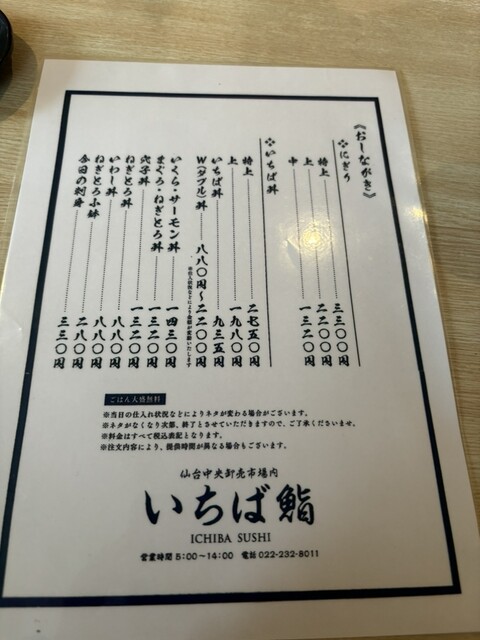 《おしながき》
❖にぎり
特上 三三〇〇円
上 二二〇〇円
中 一三二〇円
❖いちば丼
特上 二七五〇円
上 一九八〇円
いちば丼 九三五円
W(ダブル)丼 八八〇円～二二〇〇円
※仕入状況などにより金額が変動いたします
いくら・サーモン丼 一四三〇円
まぐろ・ねぎとろ丼 一三二〇円
穴子丼 一三二〇円
ねぎとろ丼 八八〇円
いわし丼 八八〇円
ねぎとろ小鉢 二八〇円
今日の刺身 三三〇円
ごはん大盛無料
※当日の仕入れ状況などによりネタが変わる場合がございます。
※ネタがなくなり次第、終了とさせていただきますので、ご了承くださいませ。
※料金はすべて税込表記となります。
※注文内容により、提供時間が異なる場合もございます。
仙台中央卸売市場内
いちば鮨
ICHIBA SUSHI
営業時間 5:00〜14:00 電話 022-232-8011